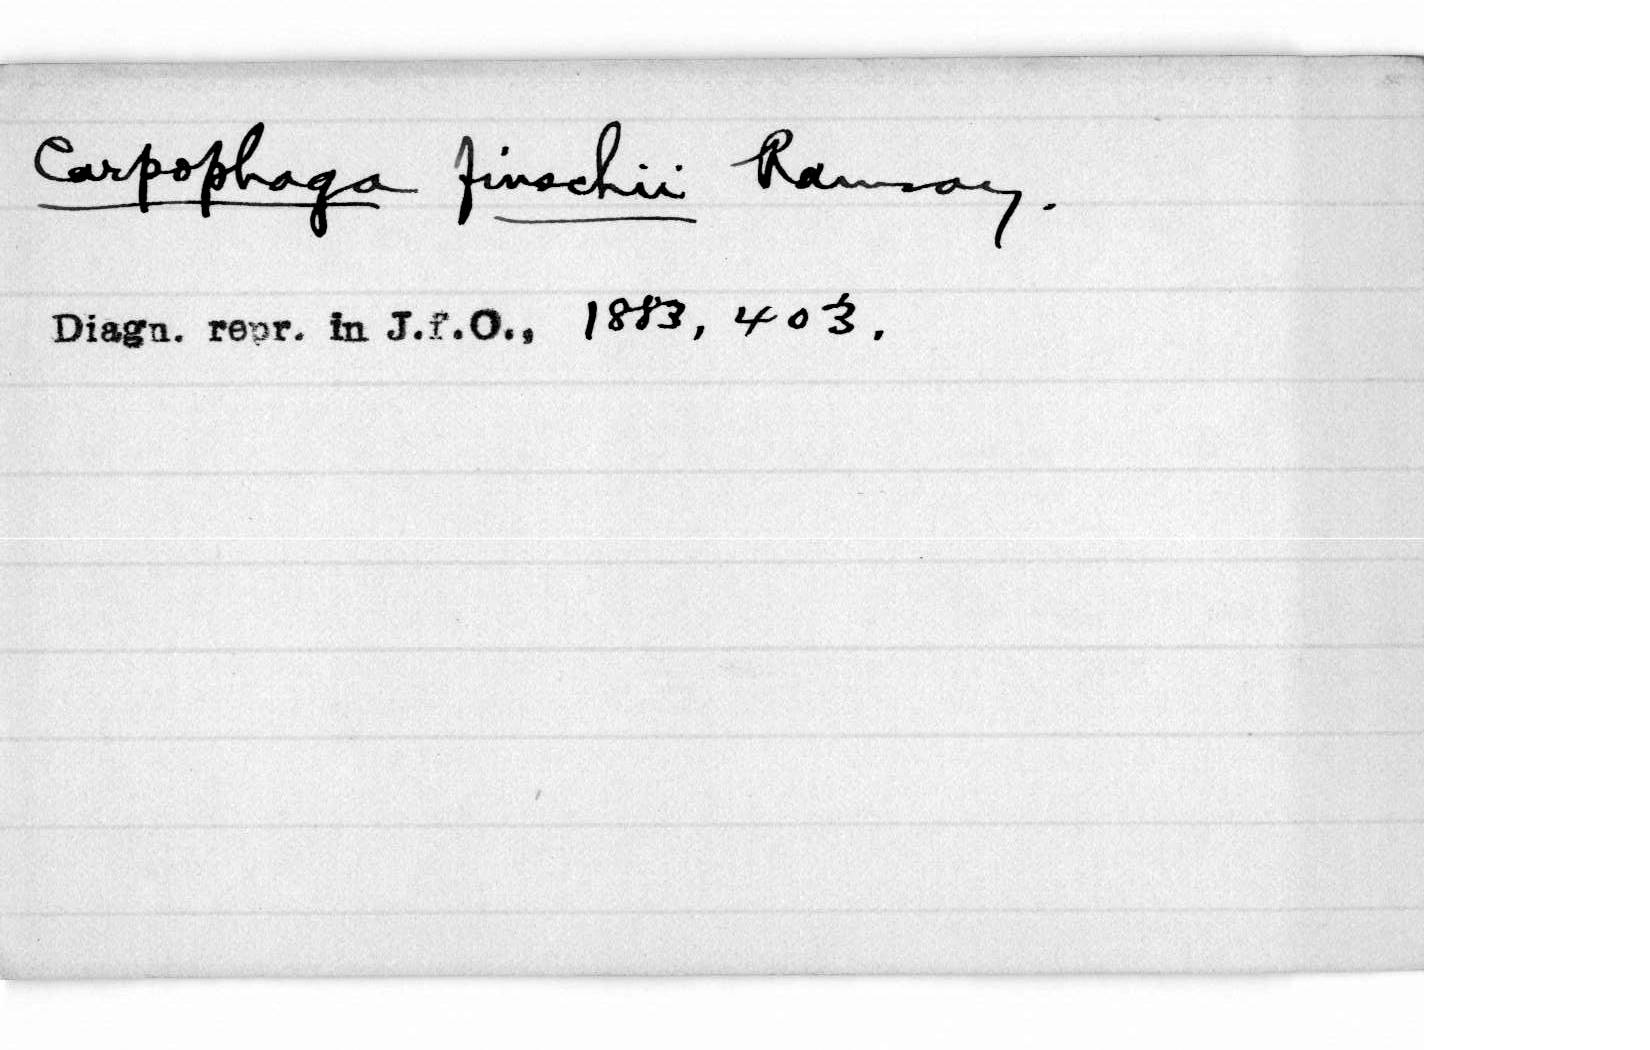 Carpophaga finschii Ramsay.
Diagn. repr. in J.f.O., 1883, 403.